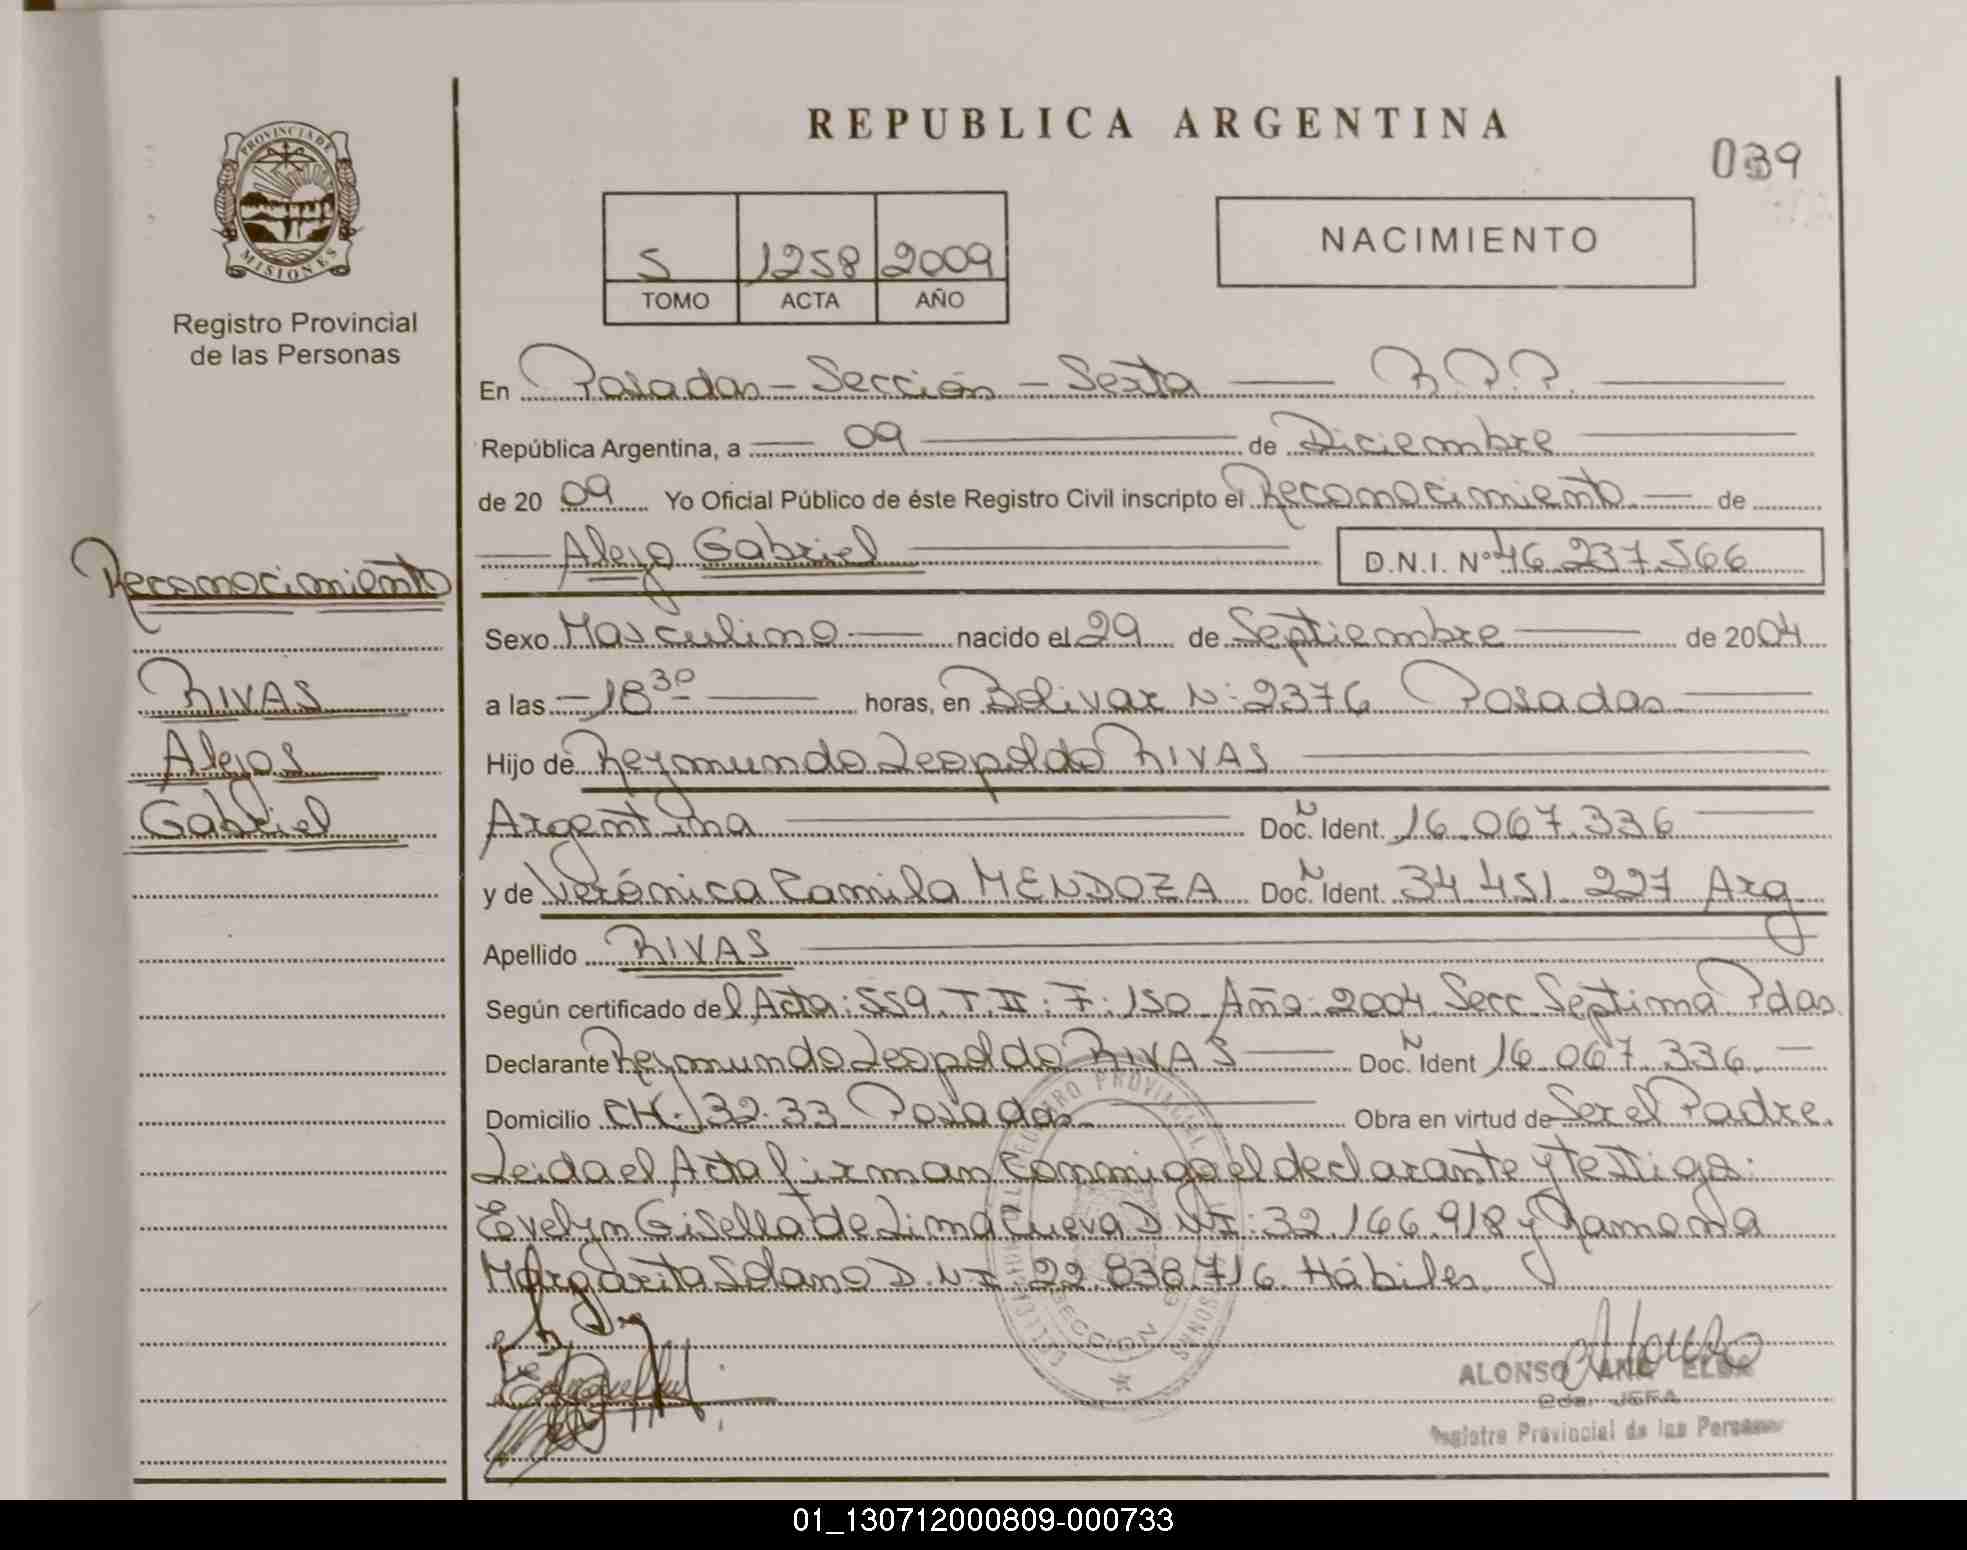 REPUBLICA ARGENTINA
039
PROVINCIA DE
MISIONES
Registro Provincial
de las Personas
5 1258 2009
TOMO ACTA AÑO
NACIMIENTO
En Posadas - Sección - Sexta R.P.P.
República Argentina, a 09 de Diciembre
de 20 09 Yo Oficial Público de éste Registro Civil inscripto el Reconocimiento de
Alejo Gabriel D.N.I. Nº 46.237.566
Reconocimiento
Sexo Masculino nacido el 29 de Septiembre de 2004
RIVAS
a las 18 30 horas, en Bolivar N: 2376 Posadas
Alejos
Hijo de Reymundo Leopoldo RIVAS
Gabriel
Argentina Doc. N Ident. 16.067.336
y de Verónica Camila MENDOZA Doc. N Ident. 34.451.227 Arg
Apellido RIVAS
Según certificado del Acta: 559. T. II: F: 150. Año: 2004. Secc. Septima Pdas.
Declarante Reymundo Leopoldo RIVAS Doc. N Ident 16.067.336.
Domicilio CH. 32.33 Posadas Obra en virtud de Ser el Padre.
Leida el Acta firman conmigo el declarante y testigo:
Evelyn Gisella de Lima Cueva D.NI: 32.166.918 y Ramona
Margarita Solano D.NI. 22.838.716. Hábiles.
ALONSO ANA ELBA
JEFA
Registro Provincial de las Personas
01_130712000809-000733